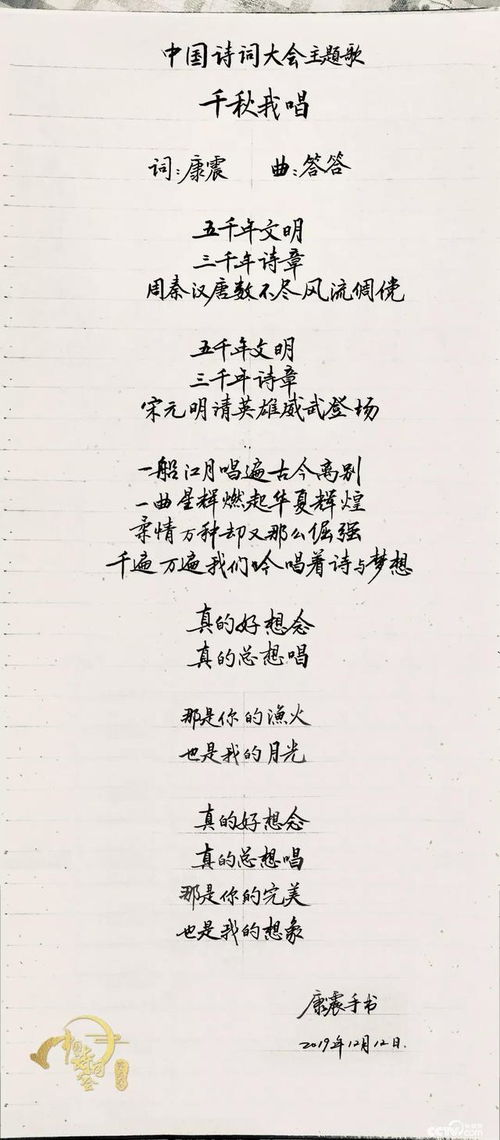 中国诗词大会主题歌
千秋我唱
词:康震 曲:答答
五千年文明
三千年诗章
周秦汉唐数不尽风流倜傥
五千年文明
三千年诗章
宋元明请英雄威武登场
一船江月唱遍古今离别
一曲星辉燃起华夏辉煌
柔情万种却又那么倔强
千遍万遍我们吟唱着诗与梦想
真的好想念
真的总想唱
那是你的渔火
也是我的月光
真的好想念
真的总想唱
那是你的完美
也是我的想象
康震手书
2019年12月12日.
中国诗词大会
CCTV.com